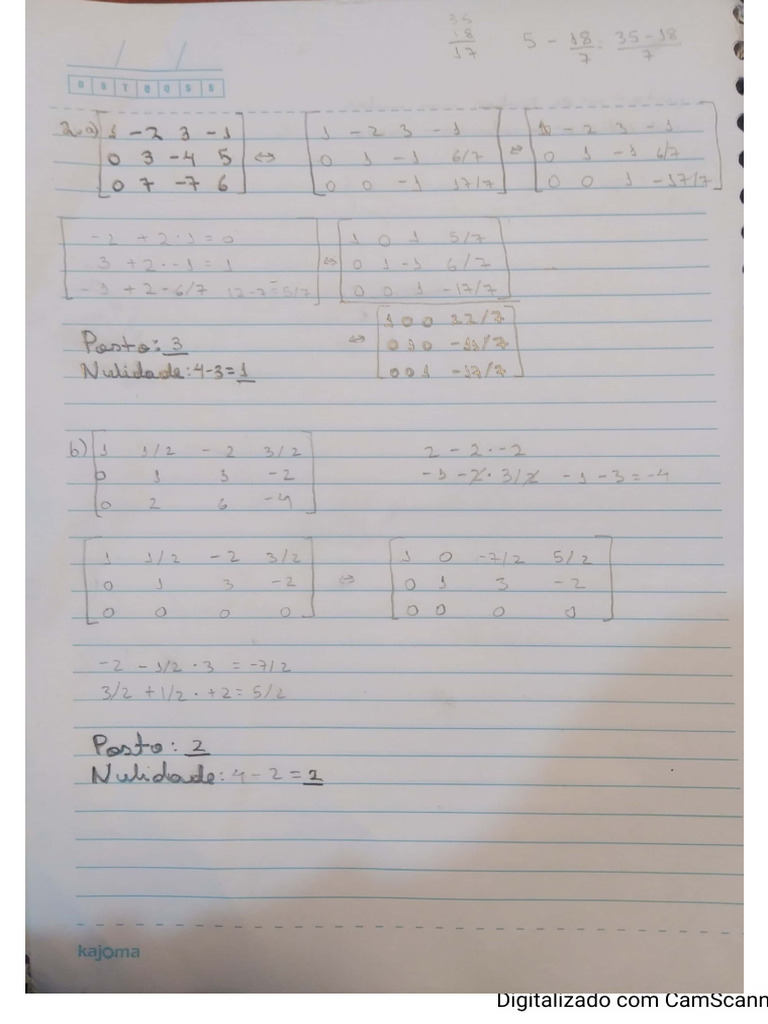 35
18
17
5 - 18/7 = 35-18/7
D S T Q Q S S
2.a) 1 -2 3 -1
0 3 -4 5
0 7 -7 6
⇔
1 -2 3 -1
0 1 -1 6/7
0 0 -1 17/7
⇔
1 -2 3 -1
0 1 -1 6/7
0 0 1 -17/7
-2 + 2·1 = 0
3 + 2·-1 = 1
-1 + 2·6/7 12-7 = 5/7
⇔
1 0 1 5/7
0 1 -1 6/7
0 0 1 -17/7
⇔
1 0 0 22/7
0 1 0 -11/7
0 0 1 -17/7
Posto: 3
Nulidade: 4-3=1
b) 1 1/2 -2 3/2
0 1 3 -2
0 2 6 -4
2 - 2·-2
-1 -2·3/2 -1-3=-4
1 1/2 -2 3/2
0 1 3 -2
0 0 0 0
⇔
1 0 -7/2 5/2
0 1 3 -2
0 0 0 0
-2 - 1/2·3 = -7/2
3/2 + 1/2·+2 = 5/2
Posto: 2
Nulidade: 4-2=2
kajoma
Digitalizado com CamScann